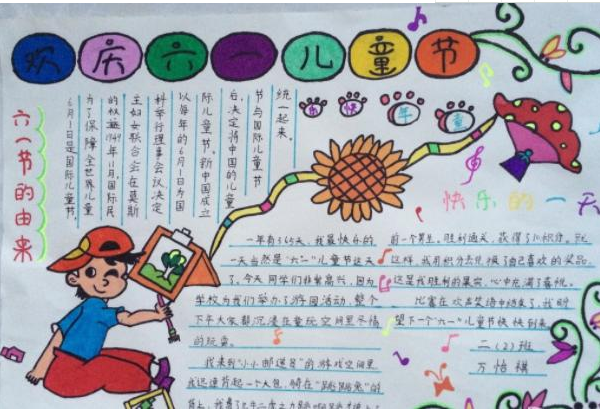 欢庆六一儿童节
六一节的由来
6月1日是国际儿童节,
为了保障全世界儿童
的权益1949年11月,国际民
主妇女联合会在莫斯
科举行理事会议决定
以每年的6月1日为国
际儿童节。新中国成立
后决定将中国的儿童
节与国际儿童节
统一起来。
快 年 童
快乐的一天
一年有365天,我最快乐的
一天当然是“六一”儿童节这天
了。今天同学们非常高兴,因为
学校为我们举办了游园活动,整个
下午大家都沉浸在童玩空间里尽情
的玩耍。
我来到“小小邮递员”的游戏空间里
我迅速背起一个大包,骑在“跳跳兔”的
背上,我费了九牛二虎之力跳啊跳
前一个男生,胜利通关,获得了10积分。就
这样,我用积分兑换了自己喜欢的奖品
这是我胜利的果实,心中充满了喜悦。
比赛在欢声笑语中结束了,我盼
望下一个“六一”儿童节快快到来
二(2)班
万怡祺